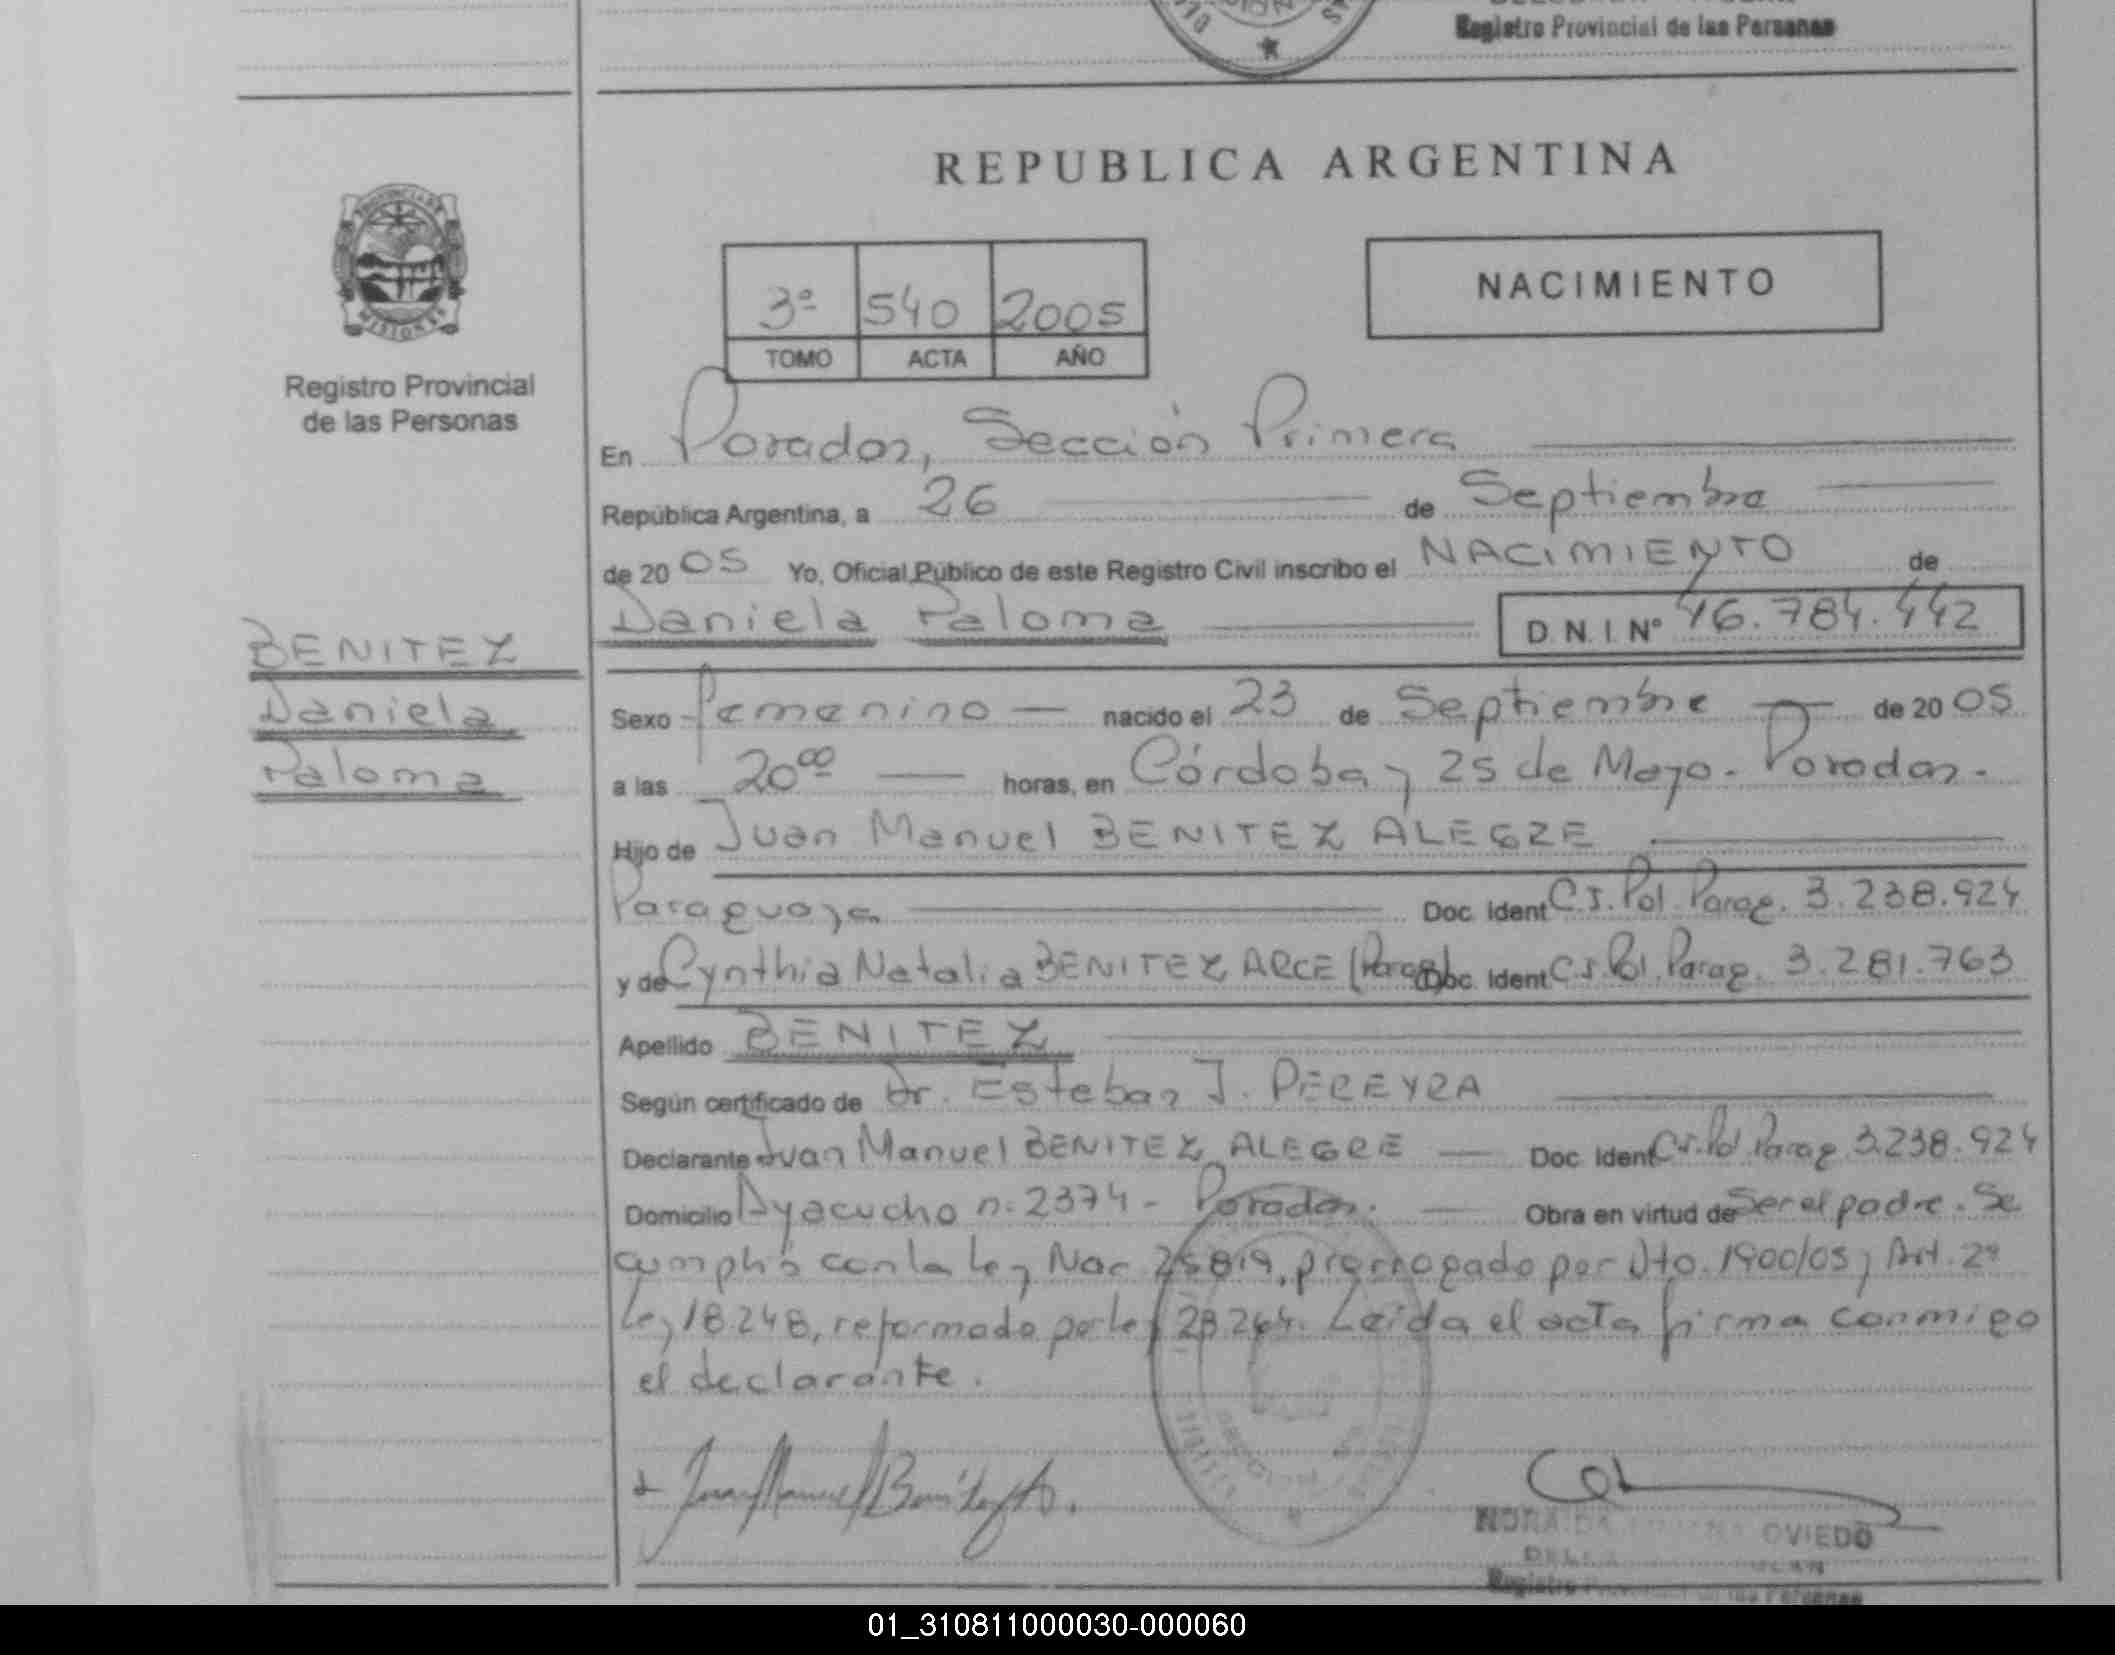 Registro Provincial de las Personas
REPUBLICA ARGENTINA
PROVINCIA DE
MISIONES
Registro Provincial
de las Personas
3º 540 2005
TOMO ACTA AÑO
NACIMIENTO
En Posadas, Sección Primera
República Argentina, a 26 de Septiembre
de 2005 Yo, Oficial Público de este Registro Civil inscribo el NACIMIENTO de
Daniela Paloma D.N.I. Nº 46.784.442
BENITEZ
Daniela
Paloma
Sexo femenino nacido el 23 de Septiembre de 2005
a las 20 00 horas, en Córdoba y 25 de Mayo - Posadas.
Hijo de Juan Manuel BENITEZ ALEGRE
Paraguaya Doc. Ident C.I. Pol. Parag. 3.238.924
y de Cynthia Natalia BENITEZ ARCE (Parag) Doc. Ident C.I. Pol. Parag. 3.281.763
Apellido BENITEZ
Según certificado de Dr. Esteban J. PEREYRA
Declarante Juan Manuel BENITEZ ALEGRE Doc. Ident C.I. Pol. Parag 3.238.924
Domicilio Ayacucho n: 2374 - Posadas. Obra en virtud de Ser el padre. Se
cumplió con la Ley Nac 25819, prorrogado por Dto. 1900/05 y Art. 2º
Ley 18248, reformado por Ley 23264. Leída el acta firma conmigo
el declarante.
Juan Manuel Benítez A.
OVIEDO
Registro Provincial de las Personas
01_310811000030-000060